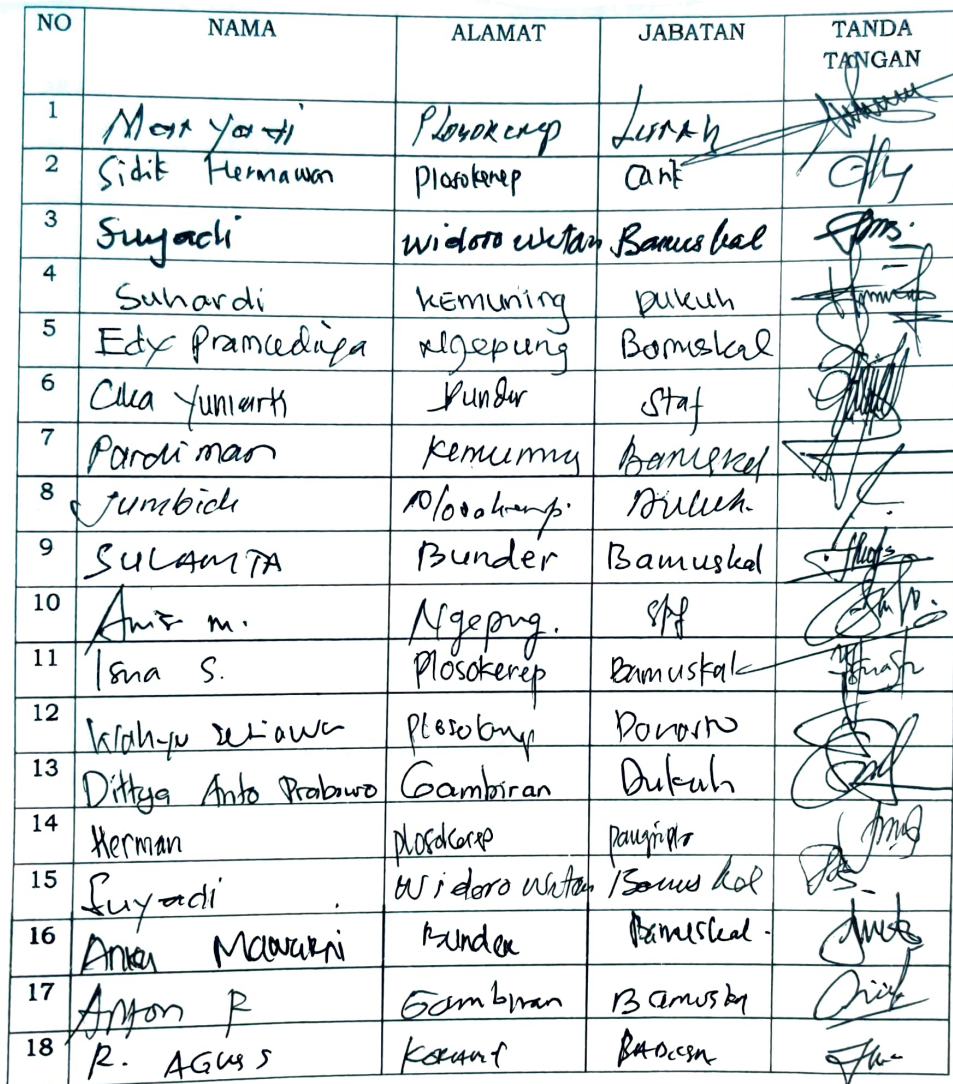 NO NAMA ALAMAT JABATAN TANDA TANGAN
1 Maryadi Plosokerep Lurah
2 Sidik Hermawan Plosokerep Carik
3 Suyadi Widoro wetan Bamuskal
4 Suhardi Kemuning Dukuh
5 Edy Ngepung Bamuskal
6 Yuniarti Bunder Staf
7 Pardiman Kemuning Bamuskal
8 Plosokerep. Dukuh.
9 SULAMTA Bunder Bamuskal
10 Anis m. Ngepung. Staf
11 Isna S. Plosokerep Bamuskal
12 Wahyu Setiawan Plosokerep Danarto
13 Dittya Anto Prabowo Gambiran Dukuh
14 Herman Plosokerep
15 Suyadi Widoro Wetan Bamuskal
16 Bunder Bamuskal.
17 Anton R Gambiran Bamuskal
18 R. AGUS S